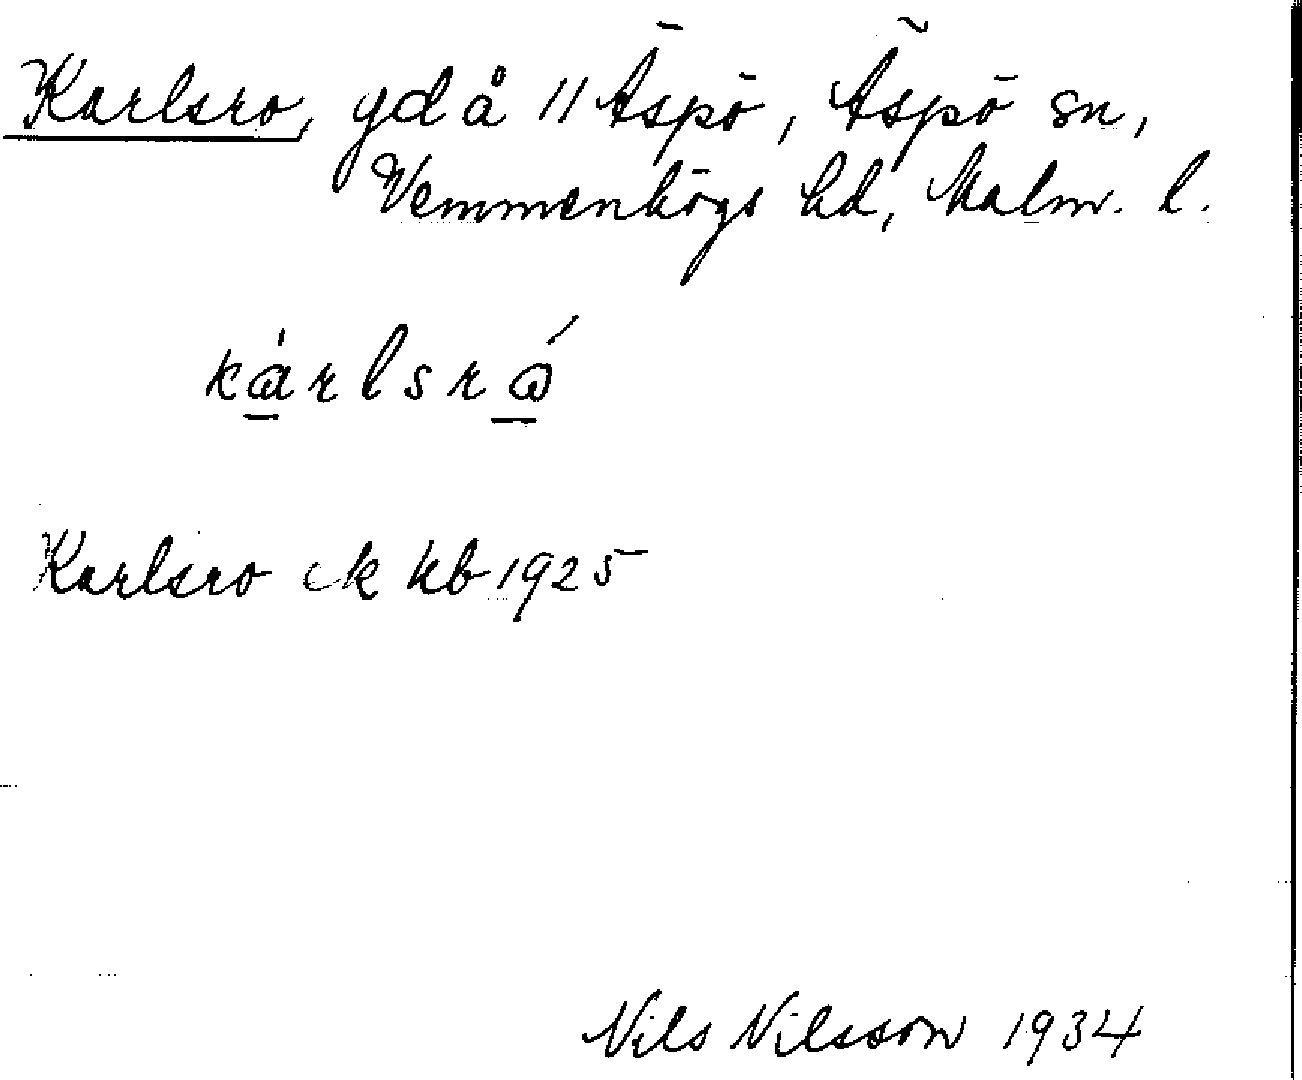 Karlsro, gd å 11 Äspö, Äspö sn,
Vemmenhögs hd, Malm. l.
kàrlsró
Karlsro ek kb 1925
Nils Nilsson 1934